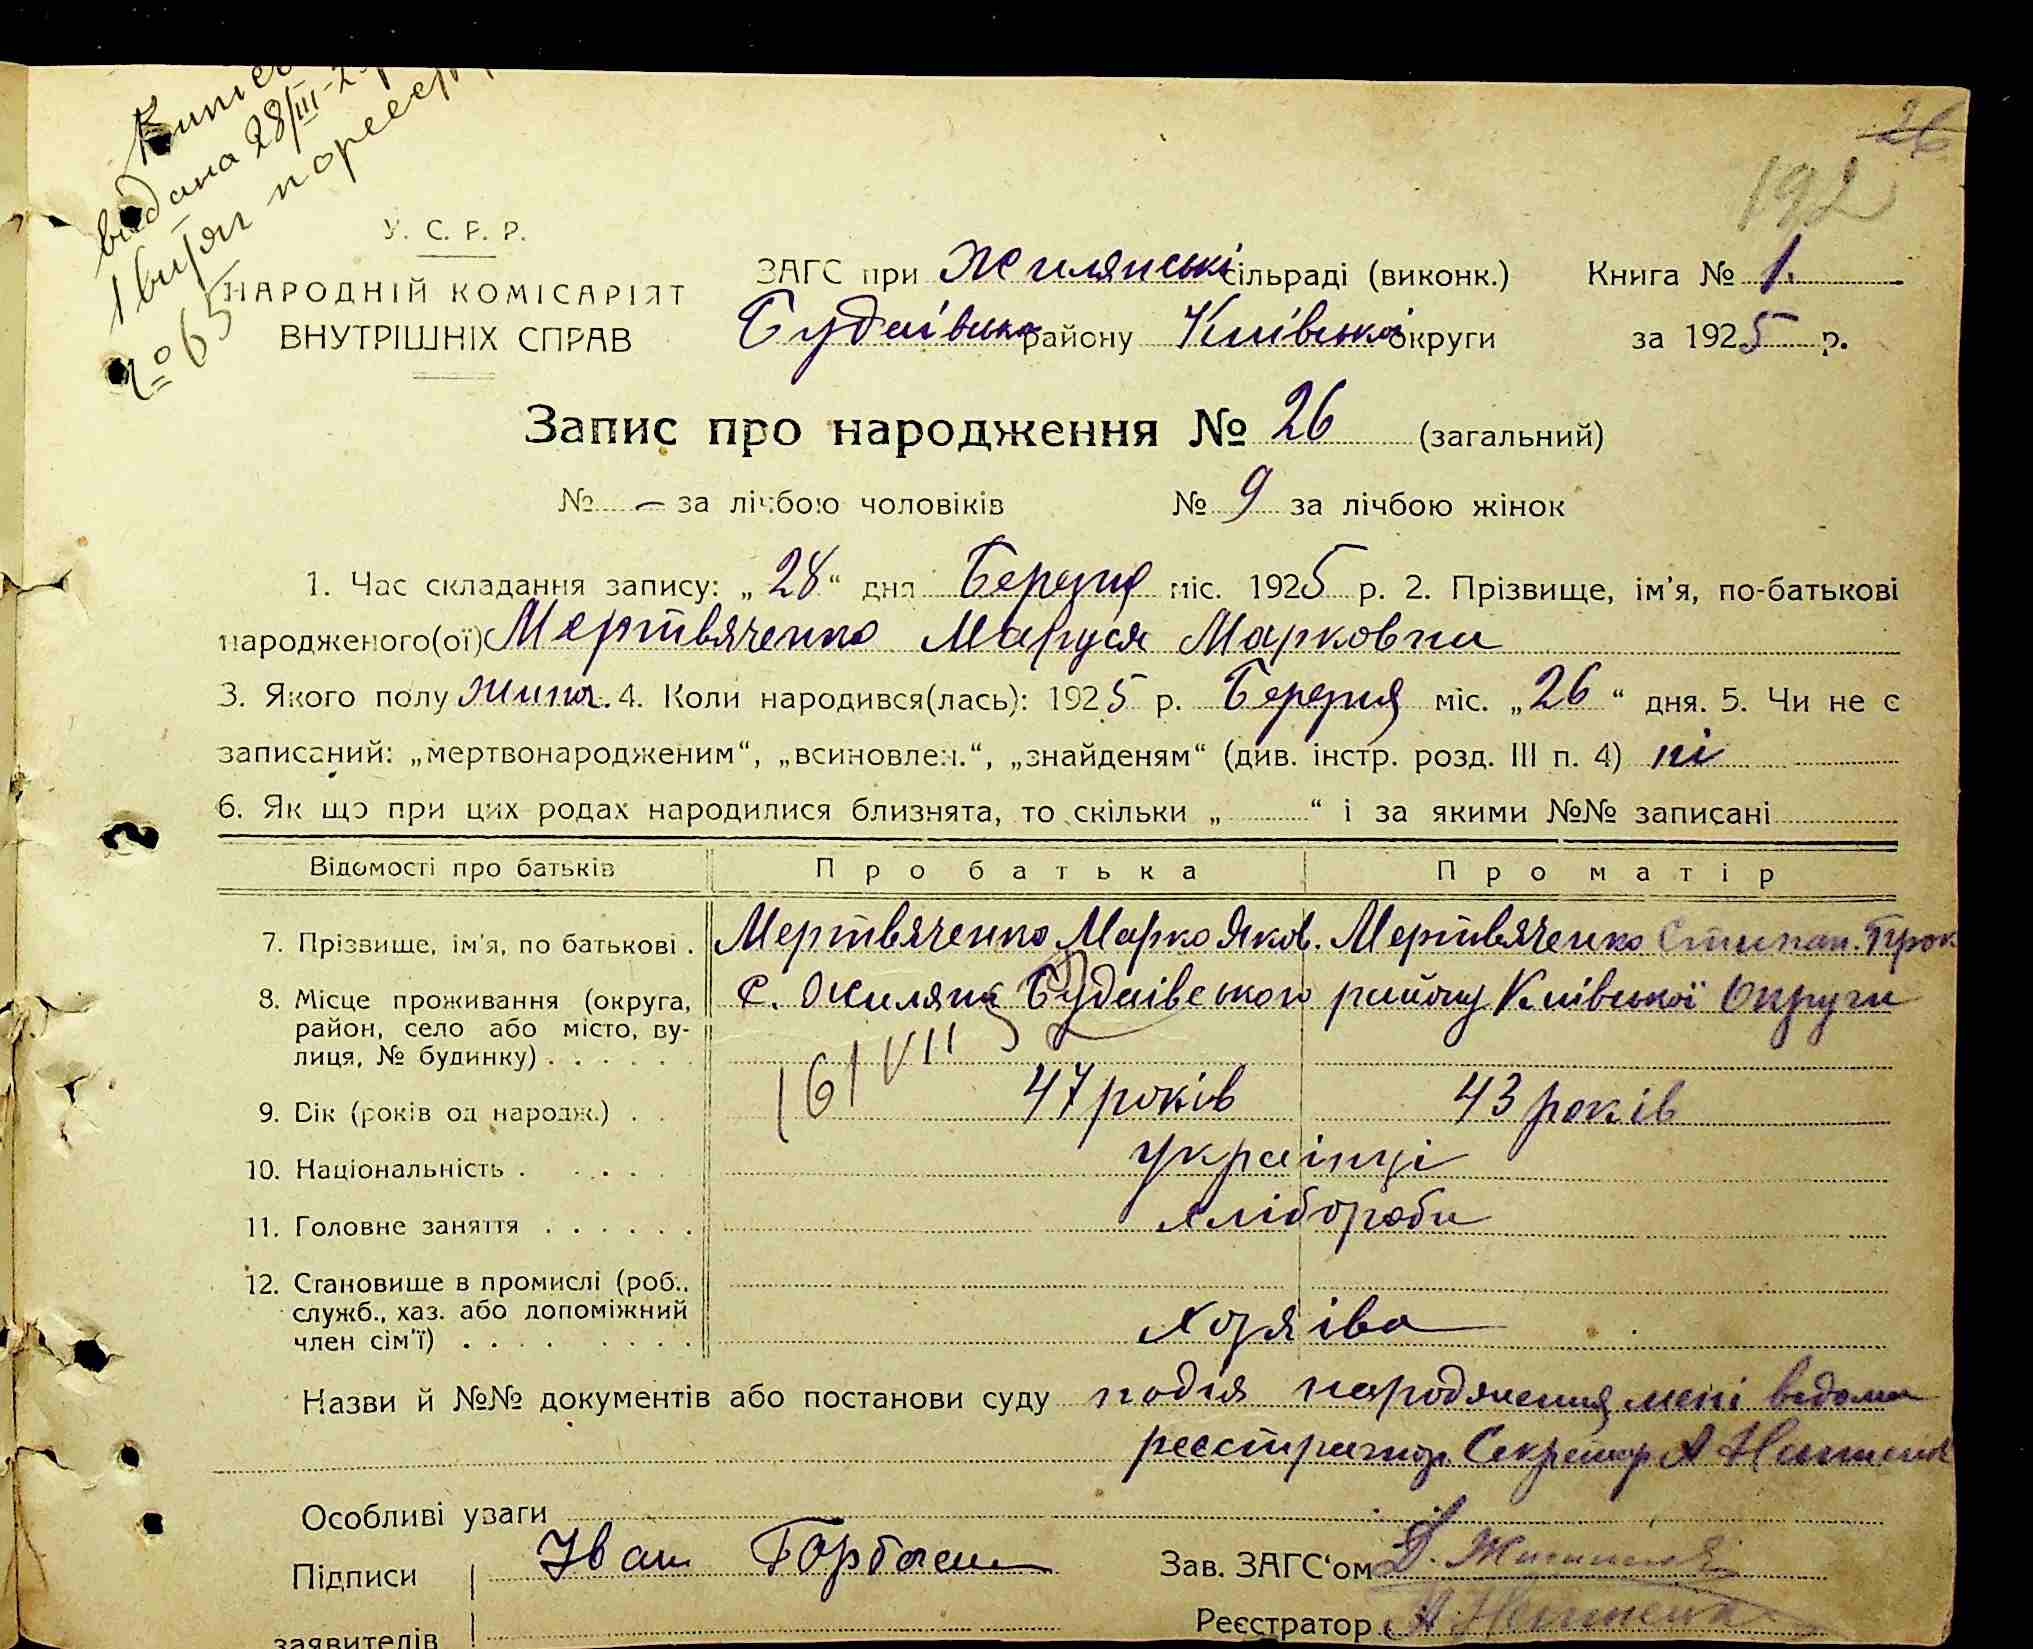 видана 28/III-2
1 витяг пореєстр
№ 65
26
192
У. С. Р. Р.
НАРОДНІЙ КОМІСАРІЯТ
ВНУТРІШНІХ СПРАВ
ЗАГС при Жилянські сільраді (виконк.) Книга № 1.
Будаївсько району Київської округи за 1925 р.
Запис про народження № 26 (загальний)
№ — за лічбою чоловіків № 9 за лічбою жінок
1. Час складання запису: „28“ дня Березня міс. 1925 р. 2. Прізвище, ім'я, по-батькові
народженого(ої) Мертвяченко Маруся Марковна
3. Якого полу жиноч. 4. Коли народився(лась): 1925 р. Березня міс. „26“ дня. 5. Чи не є
записаний: „мертвонародженим“, „всиновлен.“, „знайденям“ (див. інстр. розд. III п. 4) ні
6. Як що при цих родах народилися близнята, то скільки „ “ і за якими №№ записані
Відомості про батьків Про батька Про матір
7. Прізвище, ім'я, по батькові . Мертвяченко Марко Яков. Мертвяченко Степан. Прок.
8. Місце проживання (округа, с. Жиляни Будаївського району Київської Округи
район, село або місто, ву-
лиця, № будинку) . . . . .
161 VII
9. Вік (років од народж.) . . 47 років 43 років
10. Національність . . . . українці
11. Головне заняття . . . . . . хлібороби
12. Становище в промислі (роб.,
служб., хаз. або допоміжний
член сім'ї) . . . . . . . . хозяіва
Назви й №№ документів або постанови суду подія народження мені відома
реєстрацію Секретар А
Особливі уваги
Підписи Іван Горбаченко Зав. ЗАГС'ом
Реєстратор
заявителів